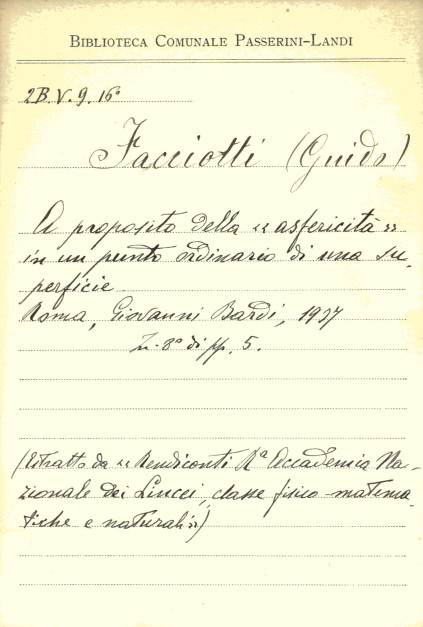 BIBLIOTECA COMUNALE PASSERINI-LANDI
2B.V.9.16°
Facciotti (Guido)
A proposito della « asfericità »
in un punto ordinario di una su-
perficie
Roma, Giovanni Bardi, 1937
In-8° di pp. 5.
(Estratto da « Rendiconti Rª Accademia Na-
zionale dei Lincei, classe fisico matema-
tiche e naturali »)